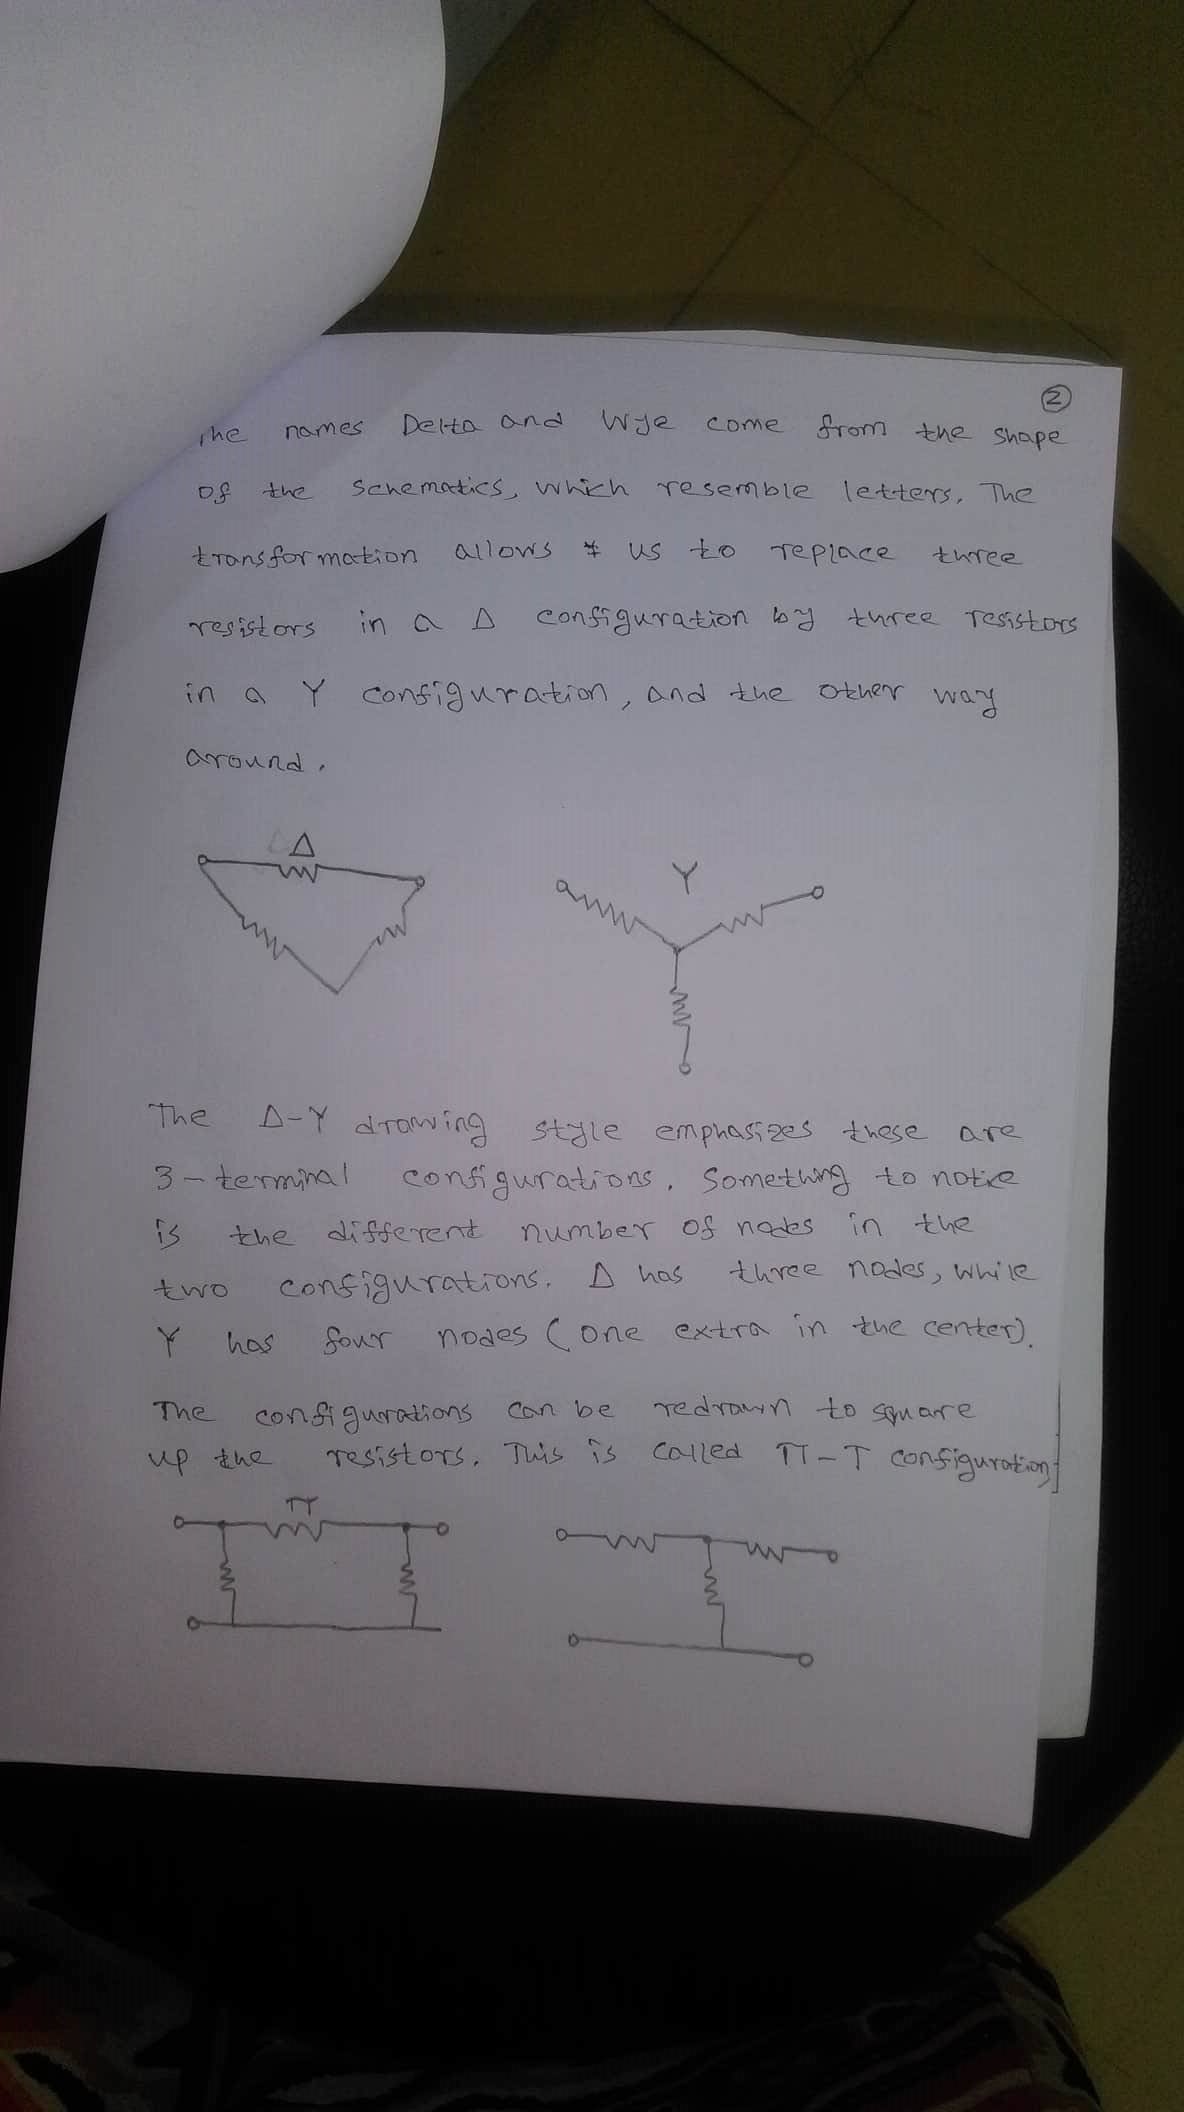 2
The names Delta and Wye come from the shape
of the schematics, which resemble letters. The
transformation allows us to replace three
resistors in a Δ configuration by three resistors
in a Y configuration, and the other way
around.
Δ
Y
The Δ-Y drawing style emphasizes these are
3-terminal configurations. Something to notice
is the different number of nodes in the
two configurations. Δ has three nodes, while
Y has four nodes (one extra in the center).
The configurations can be redrawn to square
up the resistors. This is called π-T configuration,
π